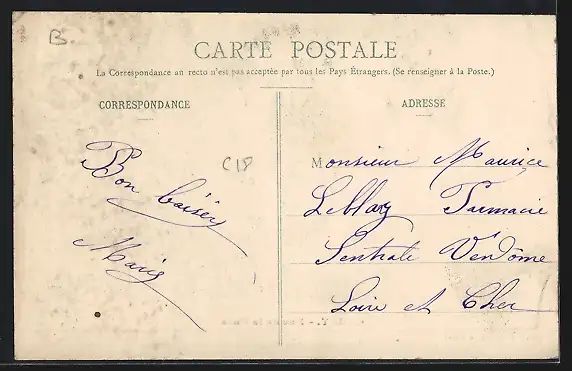 B.
CARTE POSTALE
La Correspondance au recto n'est pas acceptée par tous les Pays Étrangers. (Se renseigner à la Poste.)
CORRESPONDANCE
ADRESSE
C18
Bon baiser
Marie
Monsieur Maurice
Leblay Farmacie
Sentrale Vendôme
Loire et Cher